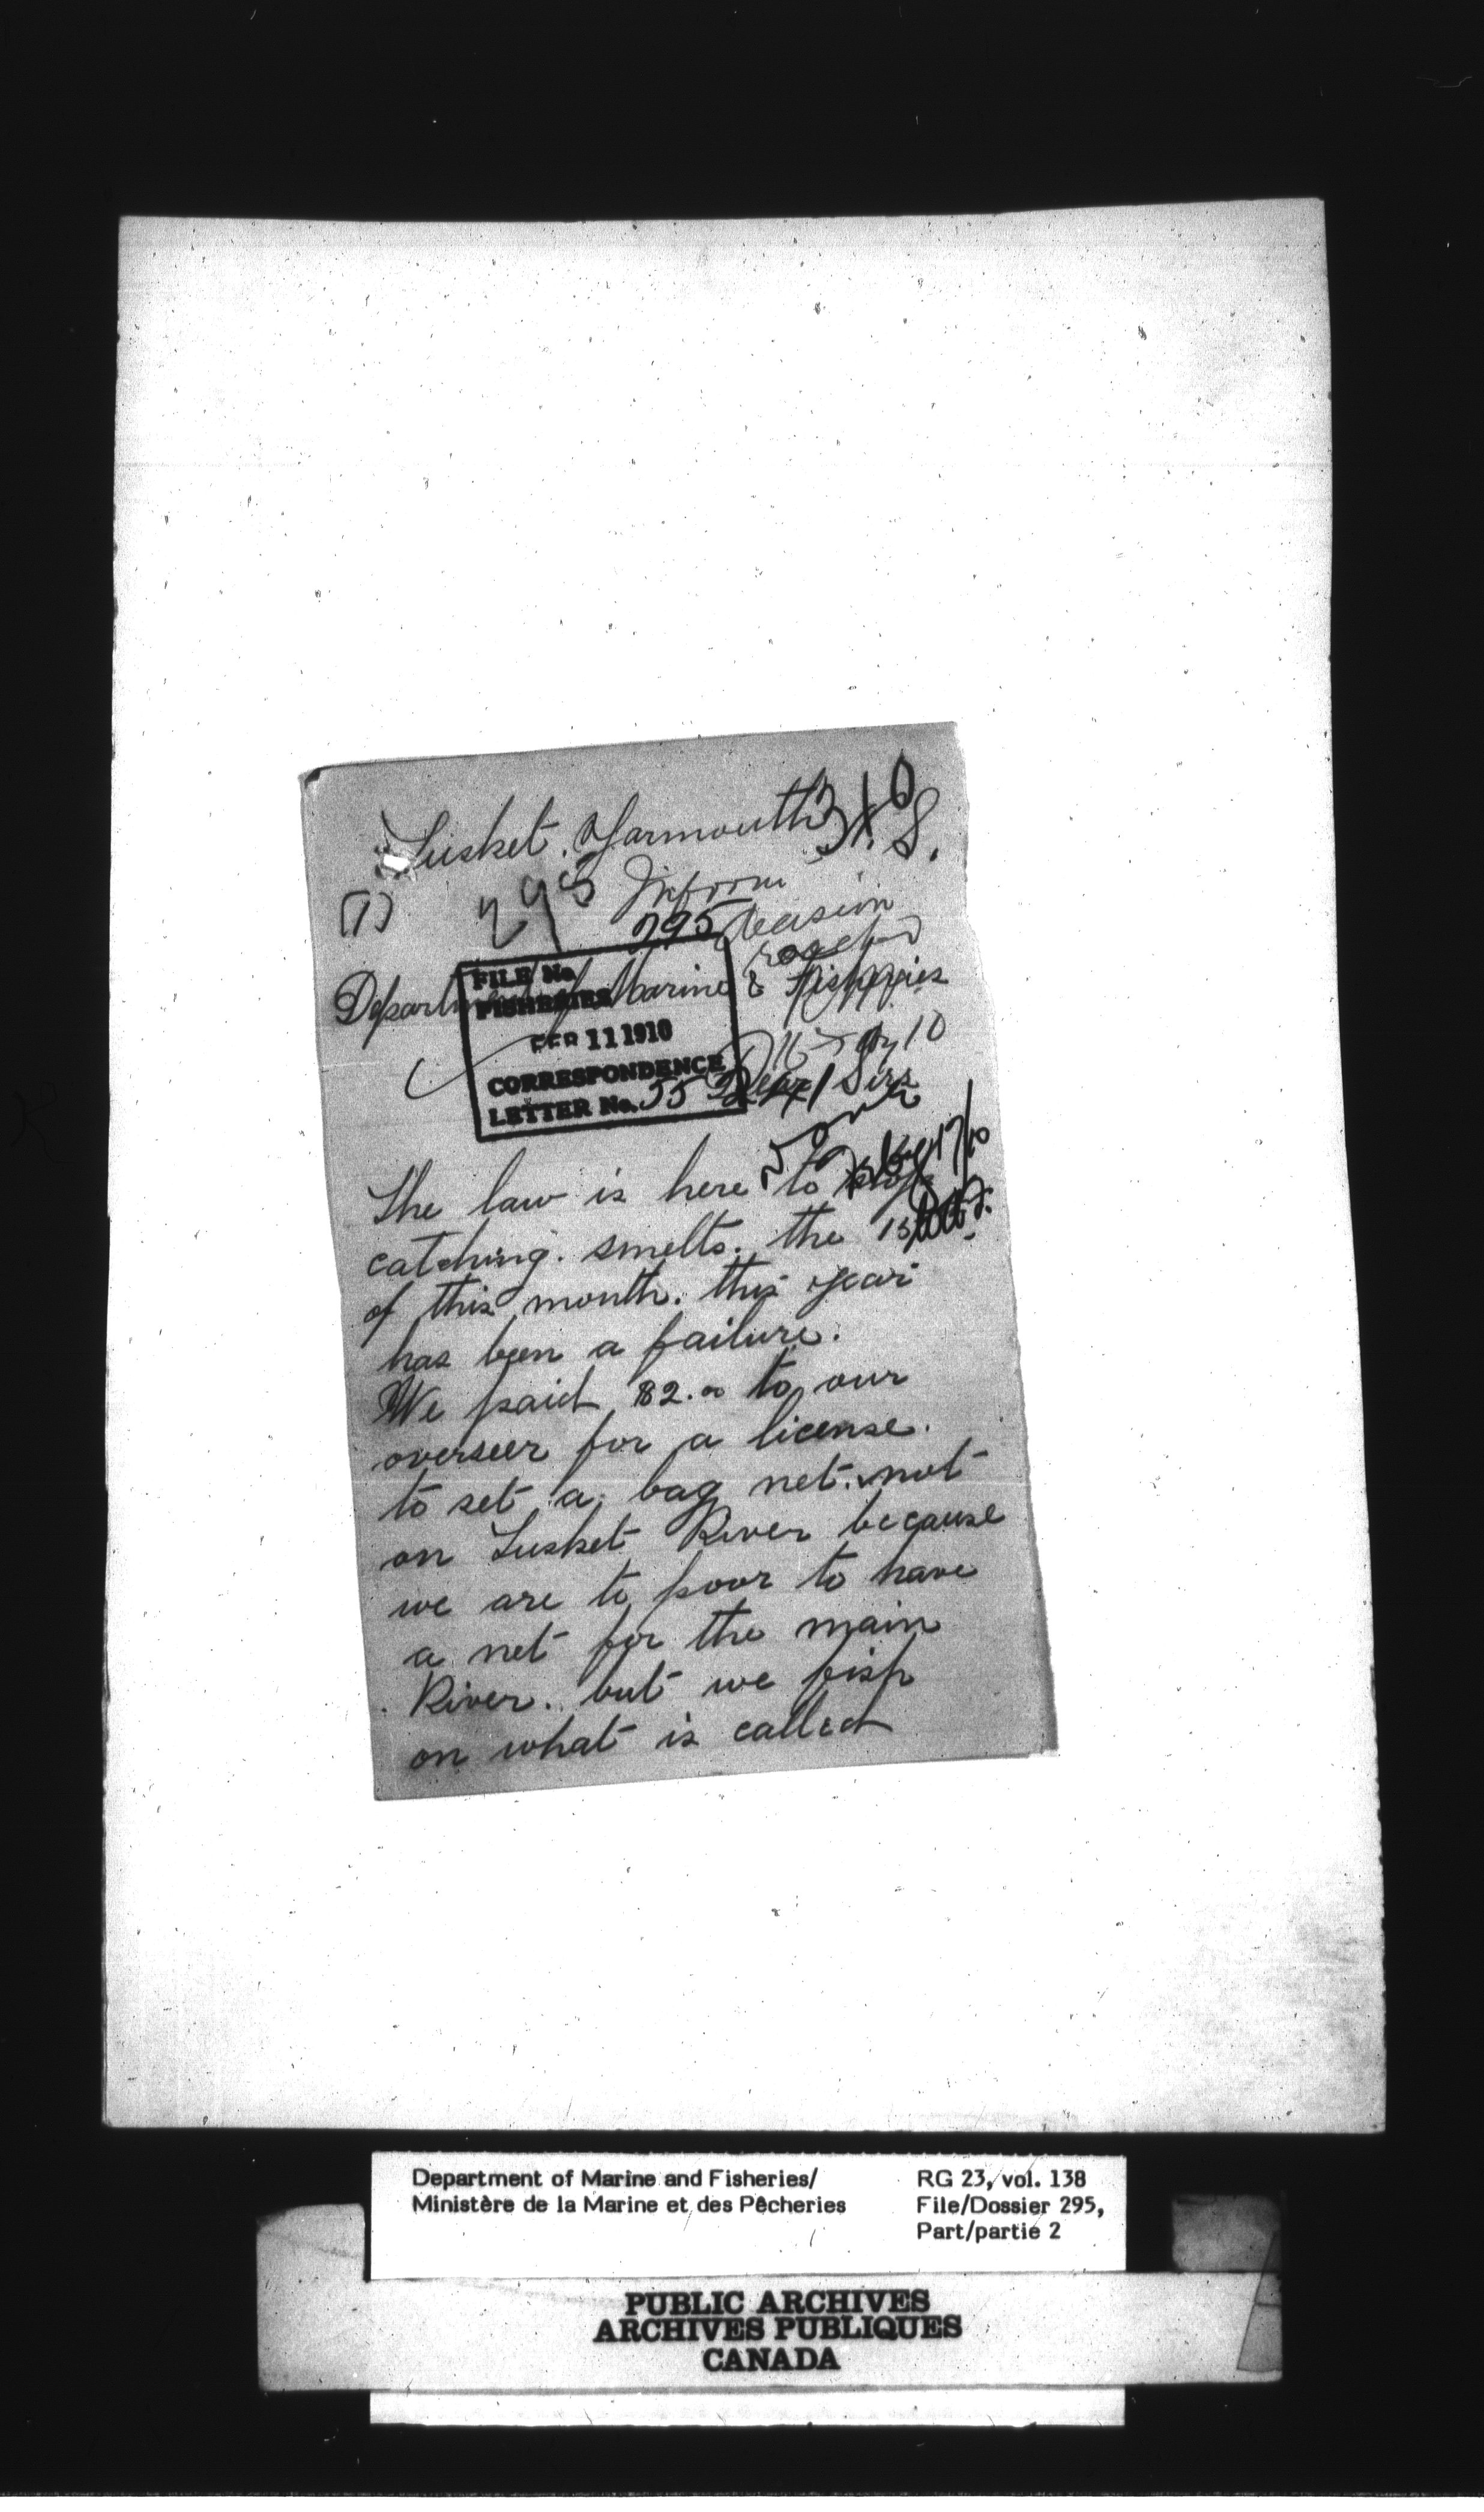 Tusket. Yarmouth N. S.
(1)
295 Inform
295 decision
reached
Department of Marine & Fisheries
FILE No.
FISHERIES
FEB 11 1910
CORRESPONDENCE
LETTER No. 55
Dear Sirs
The law is here to stop
catching. smelts. the 15
of this month. this year
has been a failure.
We paid $2.00 to our
overseer for a license.
to set a bag net. not
on Tusket River because
we are to poor to have
a net for the main
River. but we fish
on what is called
Department of Marine and Fisheries/
Ministère de la Marine et des Pêcheries
RG 23, vol. 138
File/Dossier 295,
Part/partie 2
PUBLIC ARCHIVES
ARCHIVES PUBLIQUES
CANADA